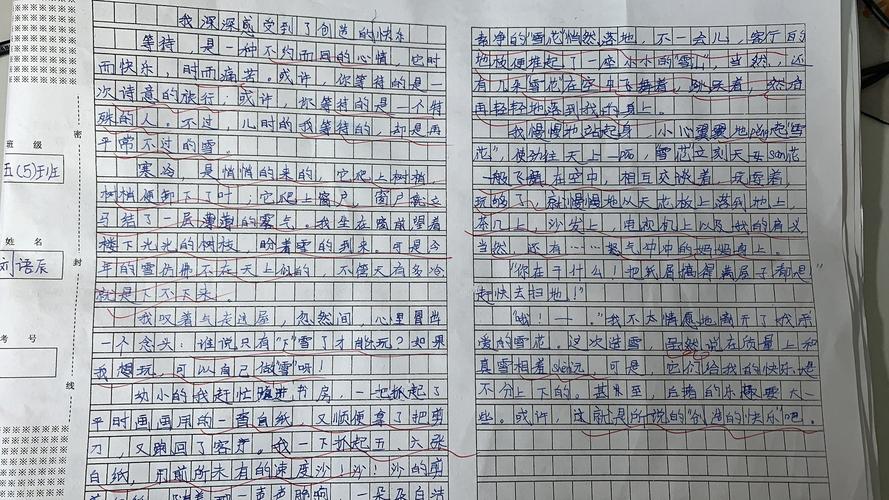 班 级
五(5)班
姓 名
刘语辰
考 号
密
封
线
我深深感受到了创造的快乐
等待，是一种不约而同的心情，它时
而快乐，时而痛苦。或许，你等待的是一
次诗意的旅行；或许，你等待的是一个特
殊的人。不过，儿时的我等待的，却是再
平常不过的雪。
寒冷，是悄悄的来的，它爬上树梢，
树梢便卸下了叶；它爬上窗户，窗户便立
马结了一层薄薄的雾气。我坐在窗前望着
楼下光光的树枝，盼着雪的到来，可是今
年的雪仿佛不在天上似的，不管天有多冷
就是下不下来。
我叹着气走进屋，忽然间，心里冒出
一个念头：谁说只有"下"雪了才能玩？如果
我想玩，可以自己"做"雪呀！
幼小的我赶忙跑进书房，一把抓起了
平时画画用的一沓白纸，又顺便拿了把剪
刀，又跑回了客厅。我一下抓起五、六张
白纸，用前所未有的速度沙！沙！沙的剪
一声声脆响，一朵朵白洁
素净的"雪花"悄然落地，不一会儿，客厅的
地板便堆起了一座小小的"雪"山，当然，还
有几朵"雪花"在空中飞舞着，跳跃着，然后
再轻轻地落到我的身上。
我慢慢地站起身，小心翼翼地pěng起"雪
花"，使劲往天上一，"雪花"立刻天女sàn花
一般飞舞在空中，相互交谈着，玩耍着，
玩够了，就慢慢地从天花板上落到地上，
茶几上，沙发上，电视机上以及我的肩上
当然，还有……怒气冲冲的妈妈身上。
"你在干什么！把纸屑搞得满屋子都是"
赶快去扫地！"
"哦！——。"我不太情愿地离开了我所
爱的雪花。这次造雪，虽然说在质量上和
真雪相差shèn远，可是，它们给我的快乐是
不分上下的。甚至，自造的乐趣要大一
些。或许，这就是所说的"创造的快乐"吧。